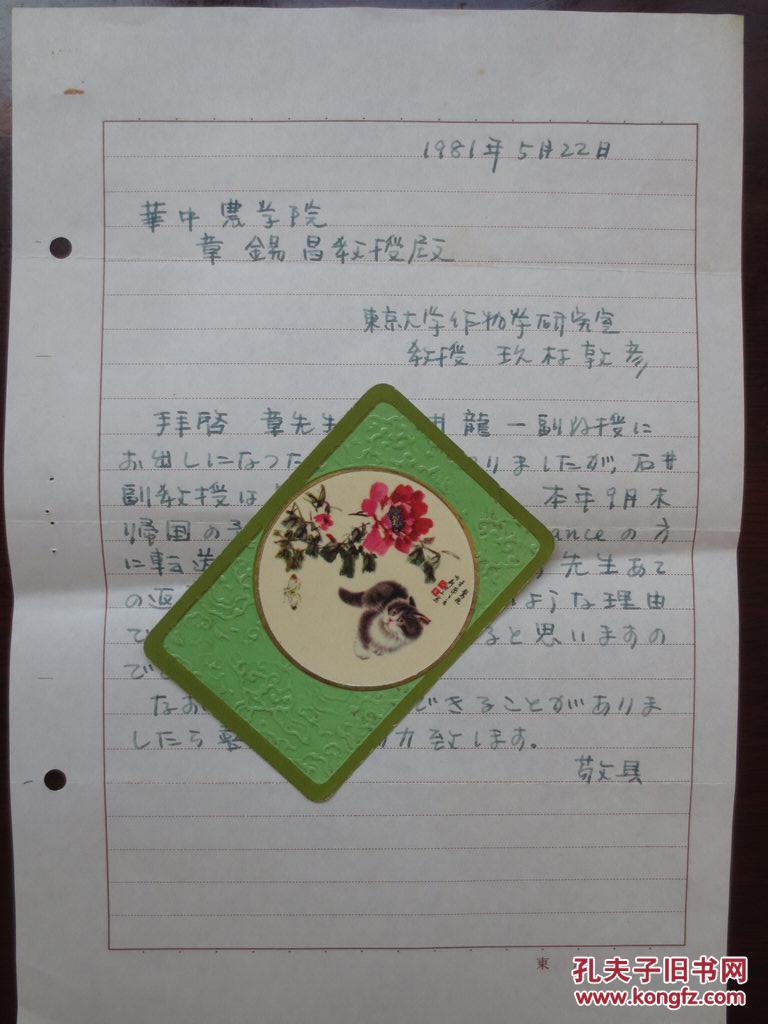 1981年5月22日
華中農学院
章 錫昌教授殿
東京大学作物学研究室
教授 玖村敦彦
拝啓 章先生 井龍一副教授に
お出しになった りましたが、石井
副教授は 本年9月末
帰国の予 anceの方
に転送 先生あて
の返 ような理由
で ると思いますの
で
なお できることがありま
したら 力致します。
敬具
東
孔夫子旧书网
www.kongfz.com